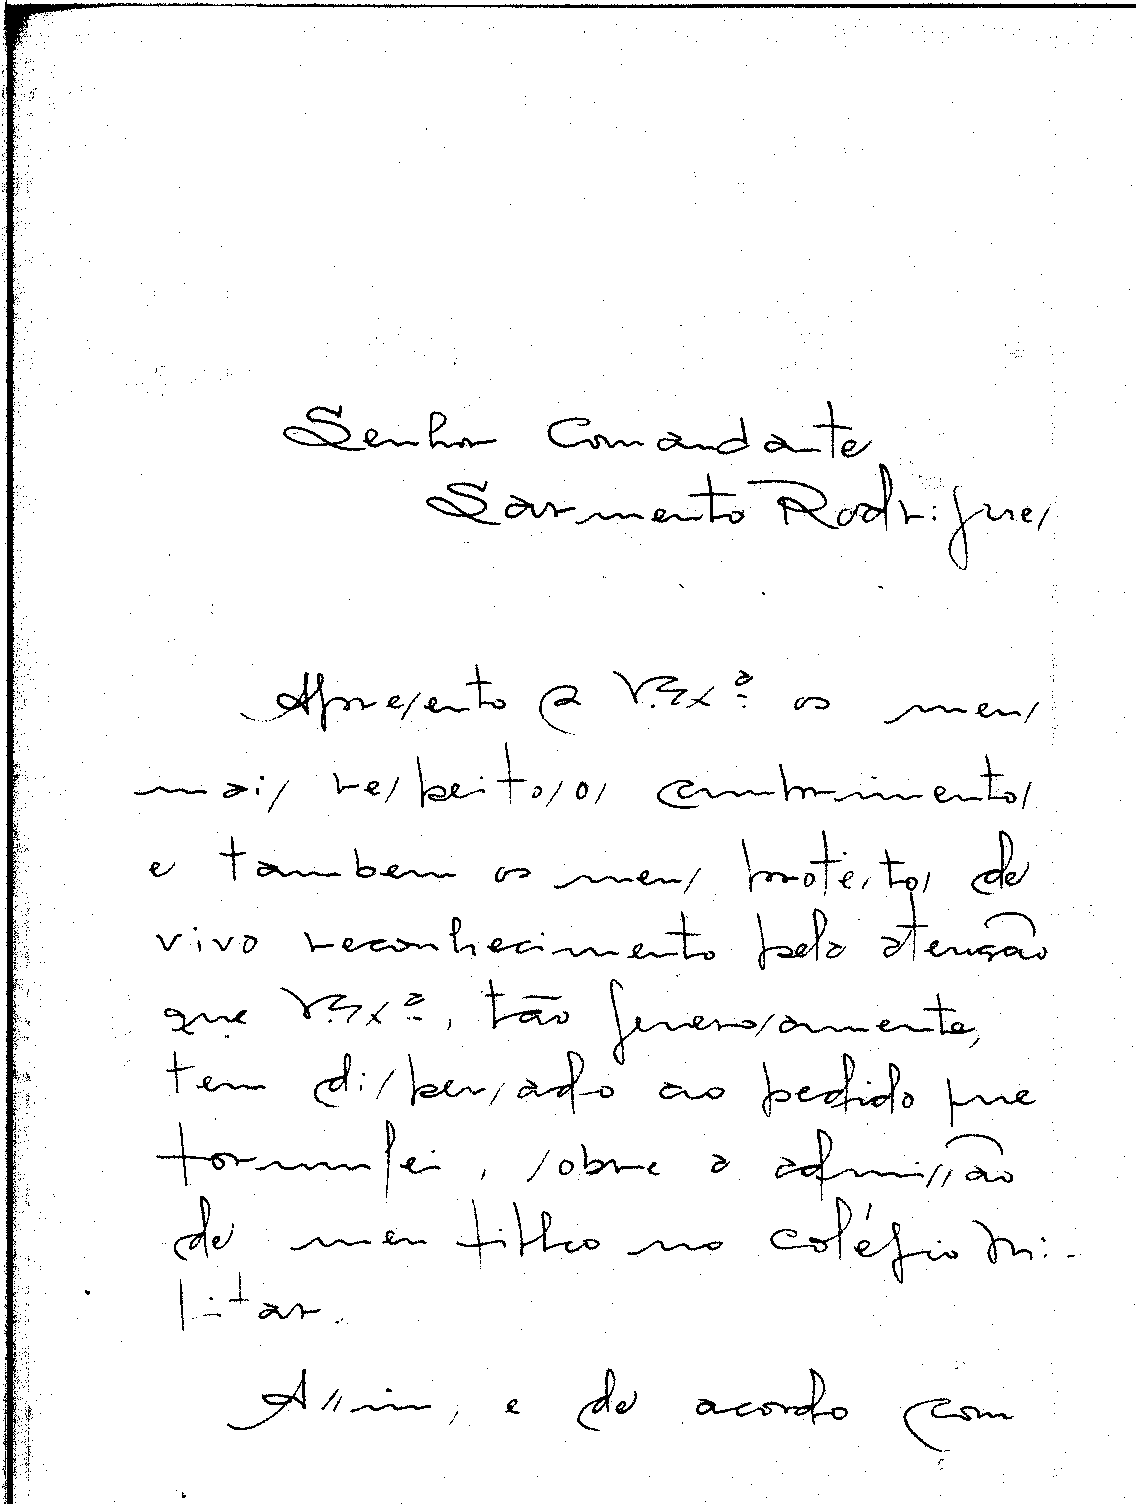 Senhor Comandante
Sarmento Rodrigues
Apresento a V. Exª os meus
mais respeitosos cumprimentos
e tambem os meus protestos de
vivo reconhecimento pela atenção
que V. Exª, tão generosamente,
tem dispensado ao pedido que
formulei, sobre a admissão
de meu filho no colégio Mi-
litar.
Assim, e de acordo com